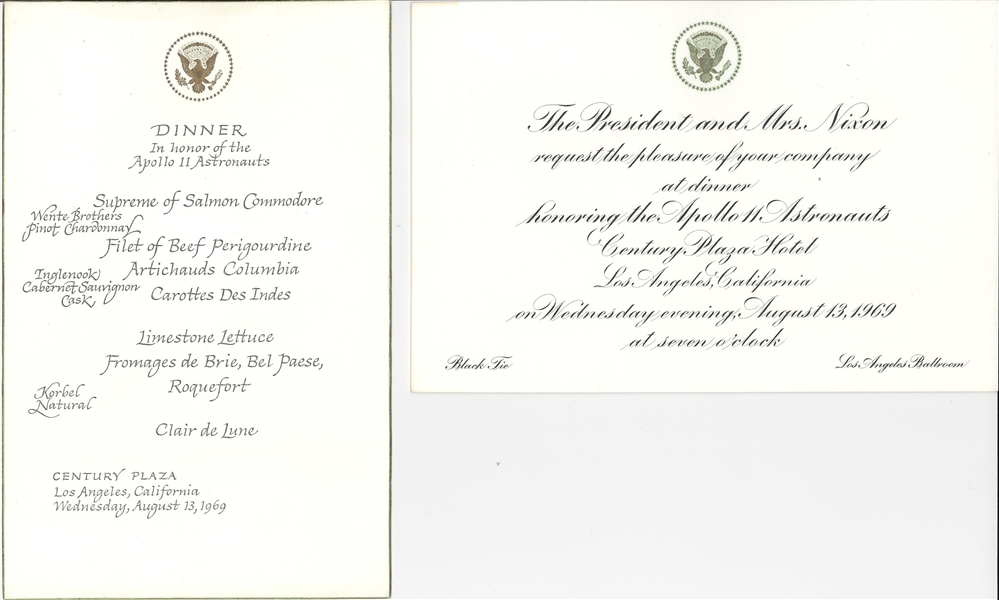 DINNER
In honor of the
Apollo 11 Astronauts
Supreme of Salmon Commodore
Wente Brothers
Pinot Chardonnay
Filet of Beef Perigourdine
Artichauds Columbia
Inglenook
Cabernet Sauvignon
Cask
Carottes Des Indes
Limestone Lettuce
Fromages de Brie, Bel Paese,
Roquefort
Korbel
Natural
Clair de Lune
CENTURY PLAZA
Los Angeles, California
Wednesday, August 13, 1969
The President and Mrs. Nixon
request the pleasure of your company
at dinner
honoring the Apollo 11 Astronauts
Century Plaza Hotel
Los Angeles, California
on Wednesday evening, August 13, 1969
at seven o'clock
Black Tie
Los Angeles Ballroom